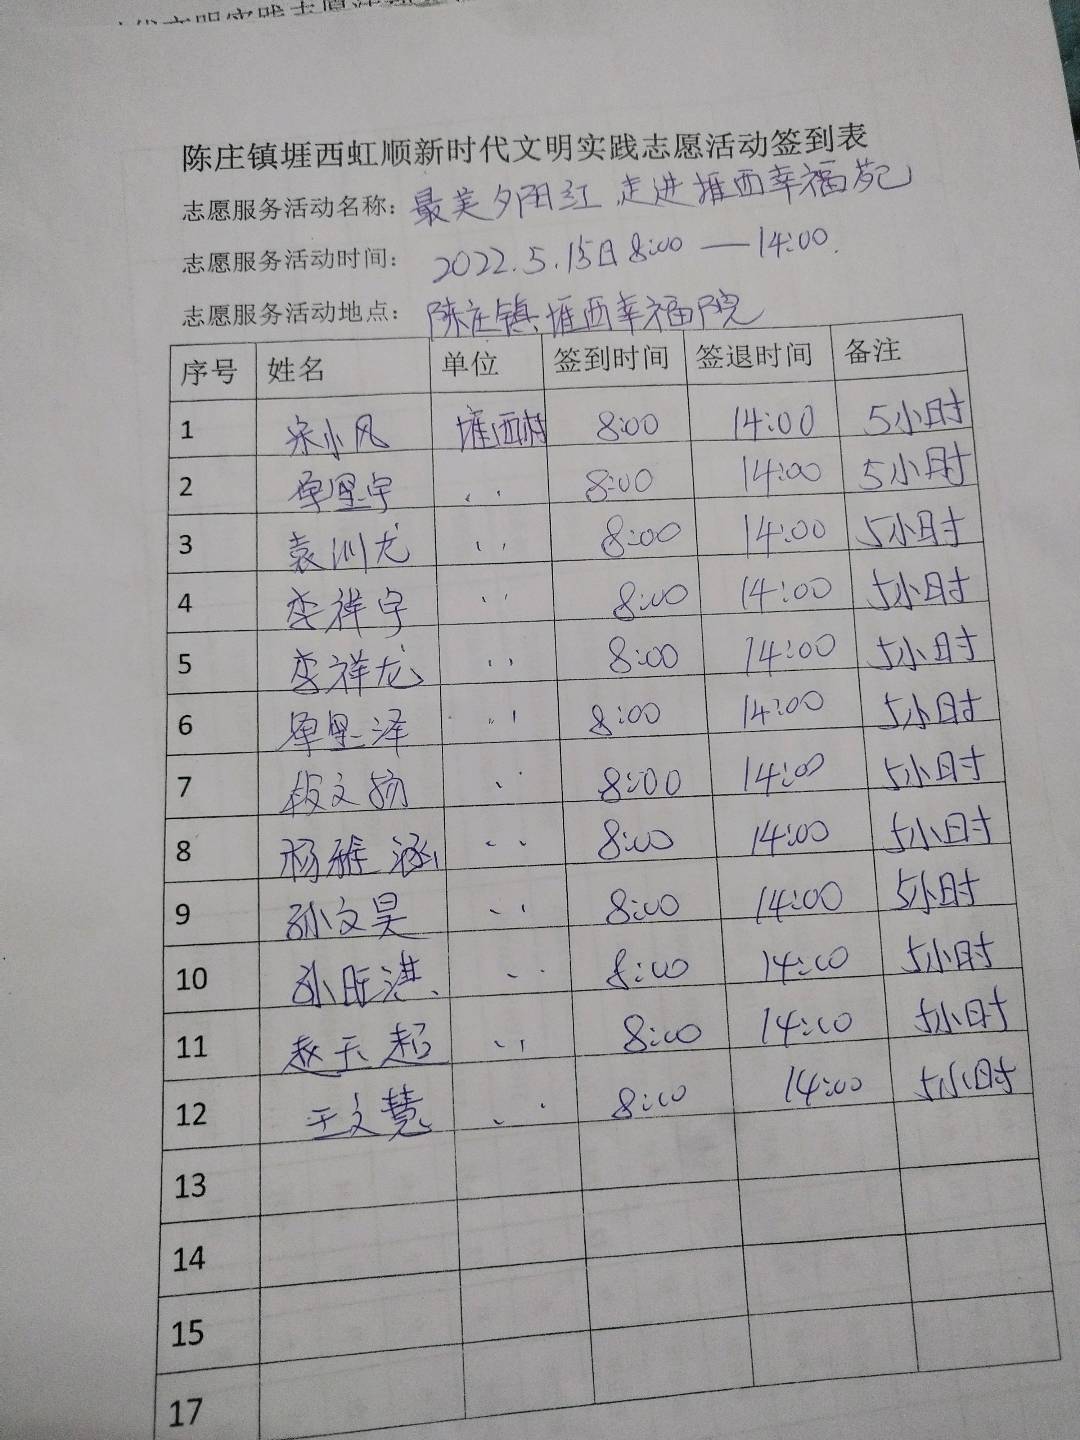 陈庄镇堐西虹顺新时代文明实践志愿活动签到表
志愿服务活动名称：最美夕阳红，走进堐西幸福苑
志愿服务活动时间：2022.5.15日8:00—14:00.
志愿服务活动地点：陈庄镇堐西幸福院
序号 姓名 单位 签到时间 签退时间 备注
1 宋小风 堐西村 8:00 14:00 5小时
2 8:00 14:00 5小时
3 袁训龙 8:00 14:00 5小时
4 李祥宇 8:00 14:00 5小时
5 李祥龙 8:00 14:00 5小时
6 8:00 14:00 5小时
7 8:00 14:00 5小时
8 杨雅涵 8:00 14:00 5小时
9 孙文昊 8:00 14:00 5小时
10 孙旺淇 8:00 14:00 5小时
11 赵天超 8:00 14:00 5小时
12 王文慧 8:00 14:00 5小时
13
14
15
17